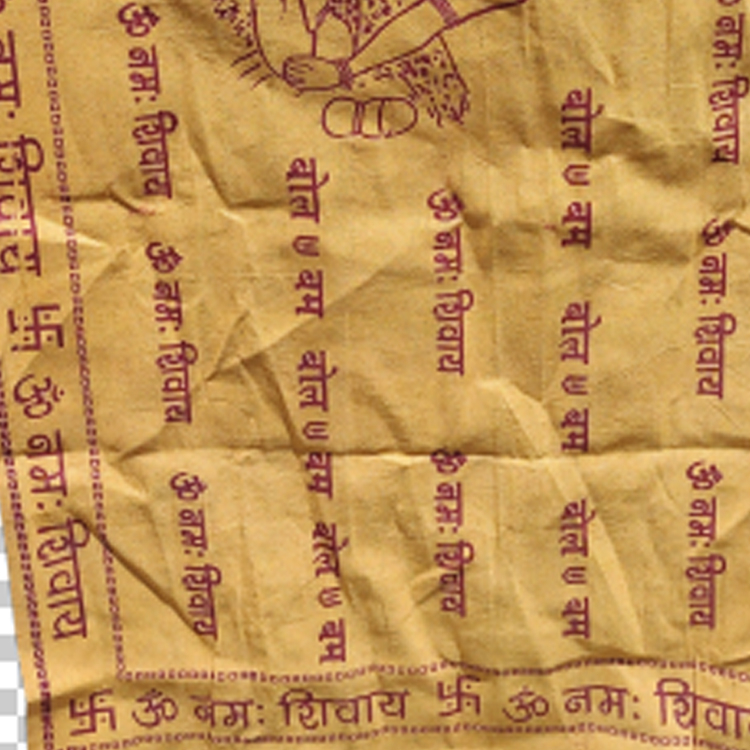 नमः शिवाय 卐 ॐ नमः शिवाय
ॐ नमः शिवाय
ॐ नमः शिवाय
ॐ नमः शिवाय
बोल ७ बम
बोल ७ बम
बोल ७ बम
ॐ नमः शिवाय
ॐ नमः शिवाय
बोल ७ बम
बोल ७ बम
बोल ७ बम
नमः शिवाय
ॐ नमः शिवाय
ॐ नमः शिवाय
卐 ॐ नमः शिवाय 卐 ॐ नमः शिवा